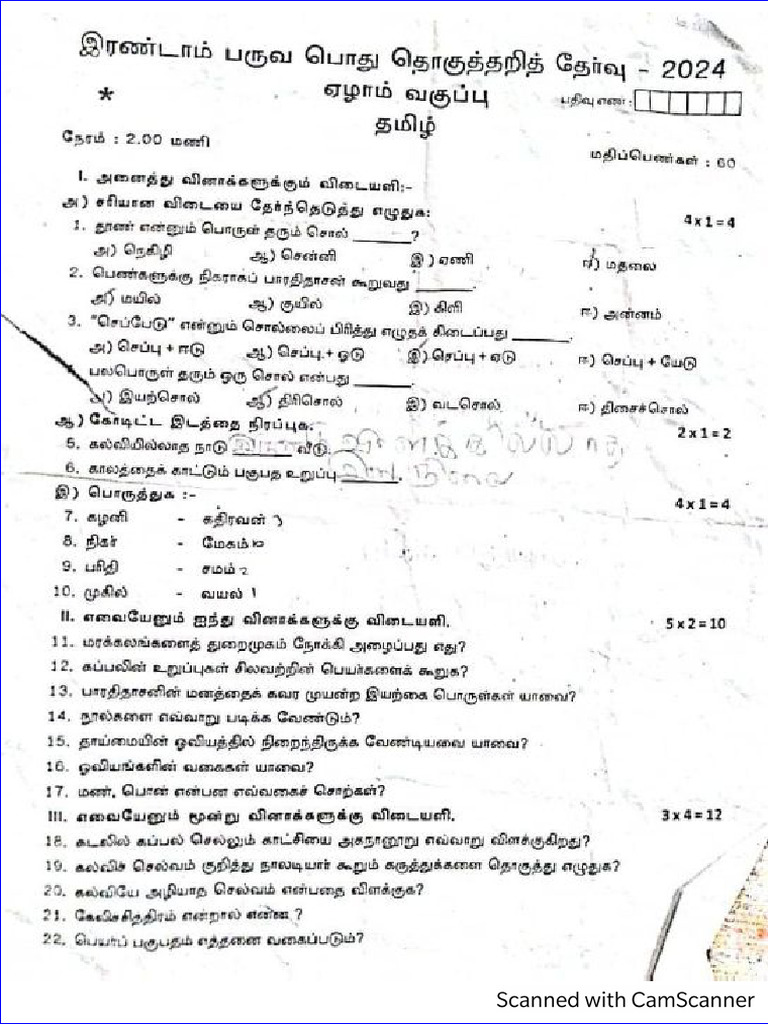 இரண்டாம் பருவ பொது தொகுத்தறித் தேர்வு - 2024
ஏழாம் வகுப்பு
* பதிவு எண்:
தமிழ்
நேரம் : 2.00 மணி
மதிப்பெண்கள் : 60
I. அனைத்து வினாக்களுக்கும் விடையளி:-
அ) சரியான விடையை தேர்ந்தெடுத்து எழுதுக: 4 x 1 = 4
1. தூண் என்னும் பொருள் தரும் சொல் ________ ?
அ) நெகிழி ஆ) சென்னி இ) ஏணி ஈ) மதலை
2. பெண்களுக்கு நிகராகப் பாரதிதாசன் கூறுவது ________.
அ) மயில் ஆ) குயில் இ) கிளி ஈ) அன்னம்
3. "செப்பேடு" என்னும் சொல்லைப் பிரித்து எழுதக் கிடைப்பது ________.
அ) செப்பு + ஈடு ஆ) செப்பு + ஓடு இ) செப்பு + ஏடு ஈ) செப்பு + யேடு
பலபொருள் தரும் ஒரு சொல் என்பது ________.
அ) இயற்சொல் ஆ) திரிசொல் இ) வடசொல் ஈ) திசைச்சொல்
ஆ) கோடிட்ட இடத்தை நிரப்புக: 2 x 1 = 2
5. கல்வியில்லாத நாடு ________ வீடு.
6. காலத்தைக் காட்டும் பகுபத உறுப்பு ________. இடைநிலை
இ) பொருத்துக :- 4 x 1 = 4
7. கழனி - கதிரவன் 3
8. நிகர் - மேகம்
9. பரிதி - சமம் 2
10. முகில் - வயல் 1
II. எவையேனும் ஐந்து வினாக்களுக்கு விடையளி. 5 x 2 = 10
11. மரக்கலங்களைத் துறைமுகம் நோக்கி அழைப்பது எது?
12. கப்பலின் உறுப்புகள் சிலவற்றின் பெயர்களைக் கூறுக?
13. பாரதிதாசனின் மனத்தைக் கவர முயன்ற இயற்கை பொருள்கள் யாவை?
14. நூல்களை எவ்வாறு படிக்க வேண்டும்?
15. தாய்மையின் ஓவியத்தில் நிறைந்திருக்க வேண்டியவை யாவை?
16. ஓவியங்களின் வகைகள் யாவை?
17. மண், பொன் என்பன எவ்வகைச் சொற்கள்?
III. எவையேனும் மூன்று வினாக்களுக்கு விடையளி. 3 x 4 = 12
18. கடலில் கப்பல் செல்லும் காட்சியை அகநானூறு எவ்வாறு விளக்குகிறது?
19. கல்விச் செல்வம் குறித்து நாலடியார் கூறும் கருத்துக்களை தொகுத்து எழுதுக?
20. கல்வியே அழியாத செல்வம் என்பதை விளக்குக?
21. கேலிச்சித்திரம் என்றால் என்ன ?
22. பெயர்ப் பகுபதம் எத்தனை வகைப்படும்?
Scanned with CamScanner